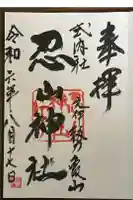 奉拝
式内社
元伊勢
亀山
忍山神社
令和六年八月十七日